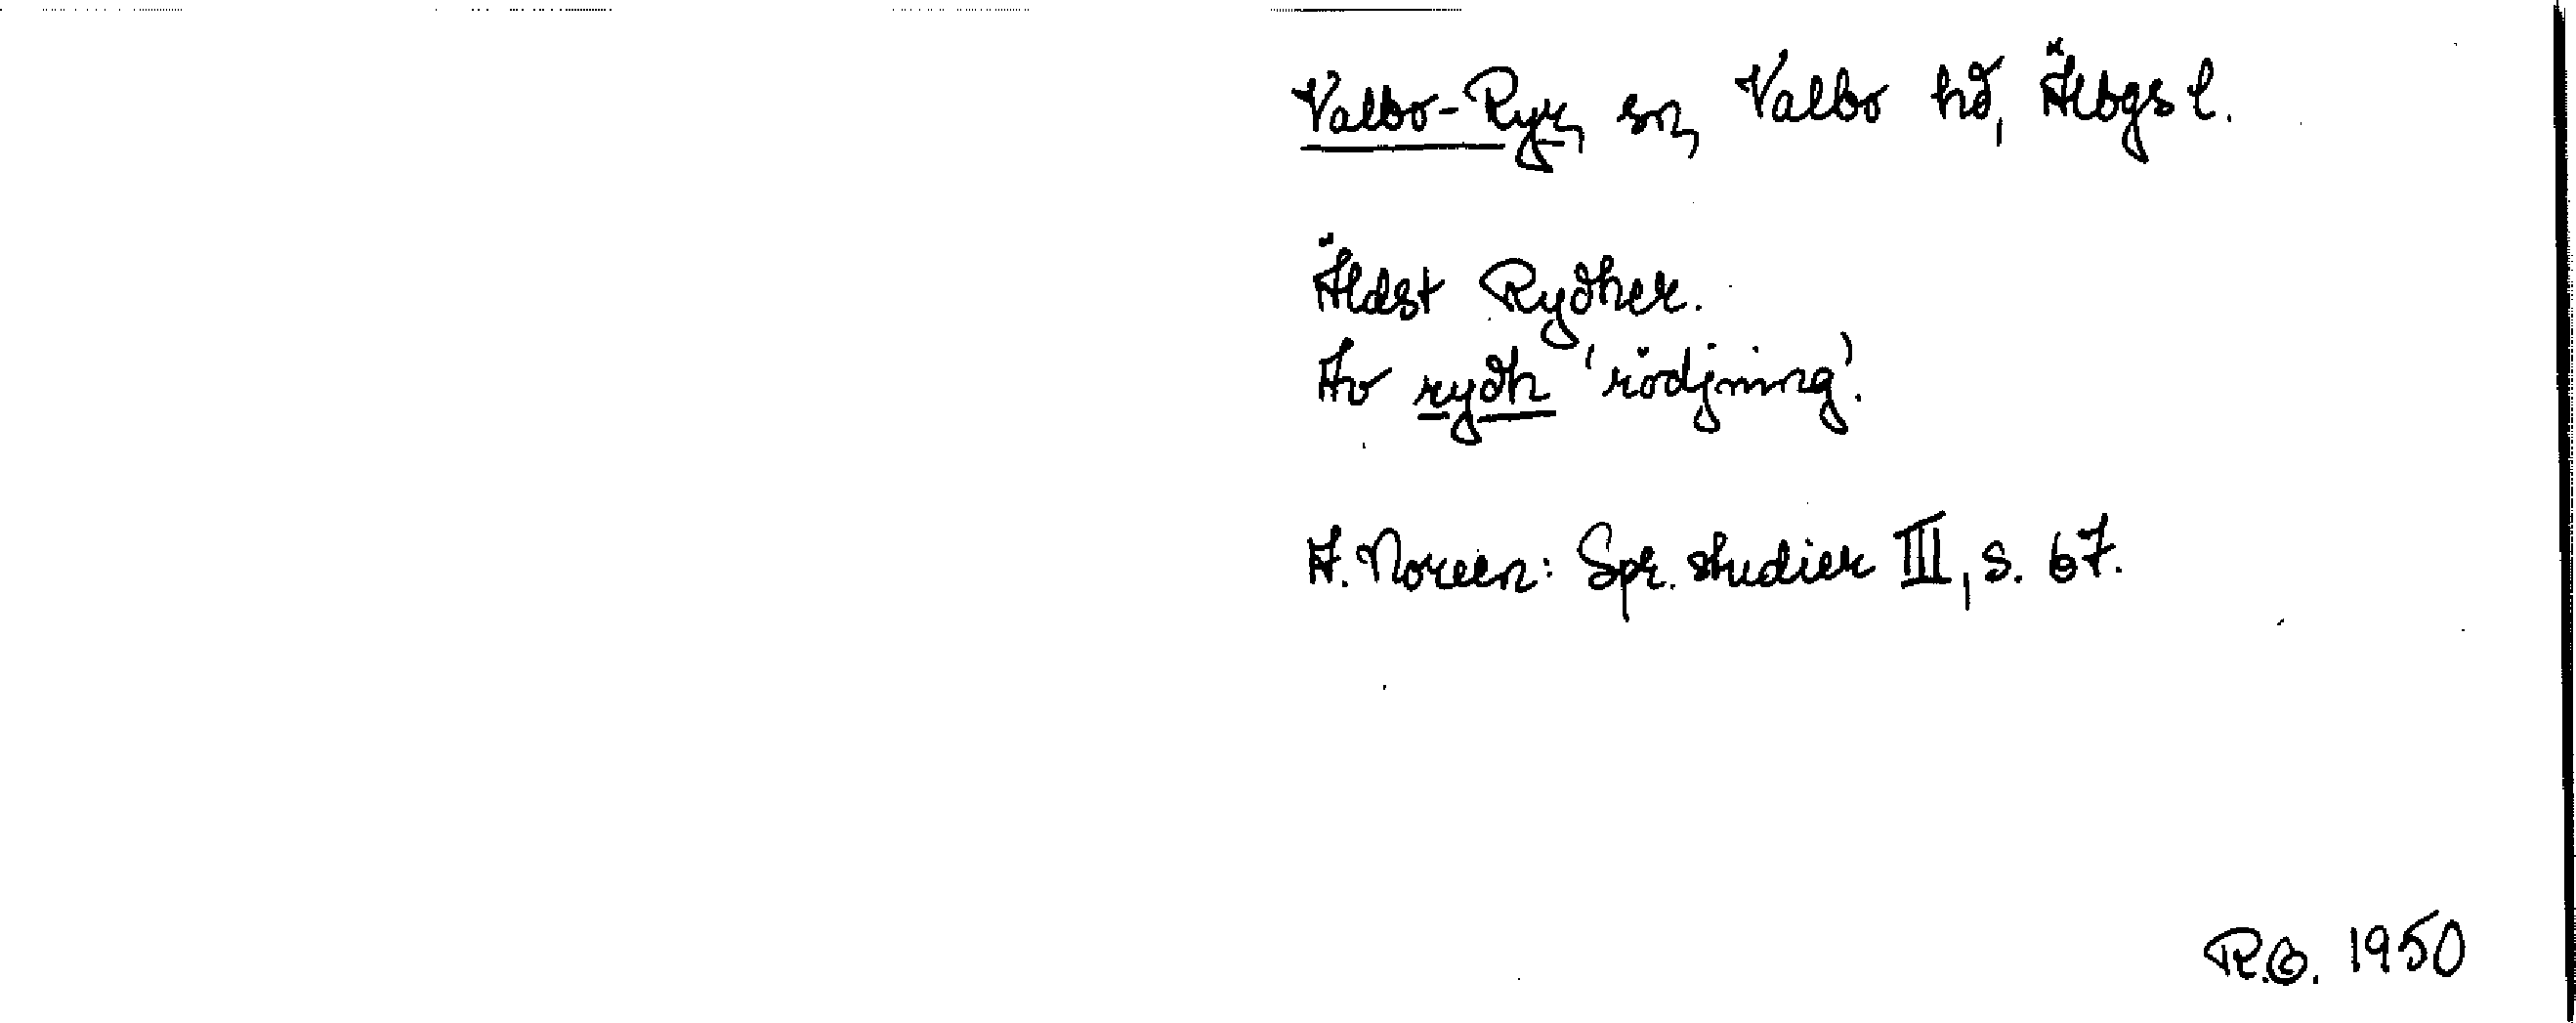 Valbo-Ryr, sn, Valbo hd, Älbgs l.
Äldst Rydher.
Av rydh 'rödjning'.
A. Noreen: Spr. studier III, s. 67.
R.G. 1950